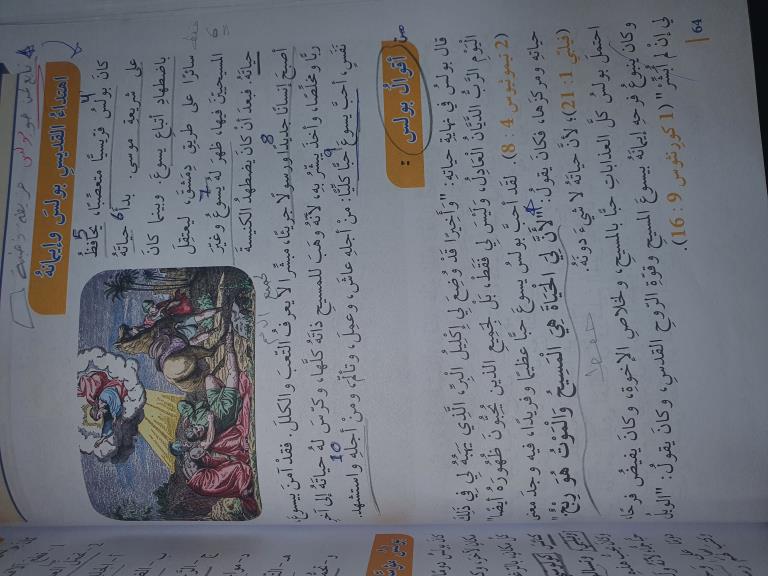 اهتداءُ القدّيسِ بولسَ وإيمانُهُ
كانَ بولسُ فرّيسيًّا متعصّبًا، يُحافظُ
على شريعةِ موسى. بدأَ حياتَهُ
باضطهادِ أتباعِ يسوعَ. وبينما كانَ
سائرًا على طريقِ دِمشقَ، ليعتقلَ
المسيحيّينَ فيها، ظهرَ لهُ يسوعُ وغيّرَ
حياتَهُ. فبعدَ أنْ كانَ يضطهدُ الكنيسةَ
أصبحَ إنسانًا جديدًا ورسولًا جريئًا، مبشّرًا لا يعرفُ التعبَ والكللَ. فقدْ آمنَ بيسوعَ،
ربًّا ومخلّصًا، وأخذَ يبشّرُ بهِ، لأنّهُ وهبَ للمسيحِ ذاتَهُ كلَّها، وكرّسَ لهُ حياتَهُ إلى آخرِ
نفَسٍ، أحبَّ يسوعَ حبًّا كلّيًّا: منْ أجلِهِ عاشَ، وعملَ، وتألّمَ، ومنْ أجلِهِ استشهدَ.
أقوالُ بولسَ :
قالَ بولسُ في نهايةِ حياتهِ: "وأخيرًا قد وُضِعَ لي إكليلُ البرِّ، الّذي يَهبُهُ لي في ذلكَ
اليَوْمِ الرَّبُّ الدَّيَّانُ العَادِلُ، وَلَيْسَ لِي فَقَطْ، بَلْ لِجَمِيعِ الَّذينَ يُحِبُّونَ ظُهُورَهُ أَيْضًا"
(2 تيموثيوس 4 : 8). لقدْ أحبَّ بولسُ يسوعَ حبًّا عظيمًا وفريدًا، فيهِ وجدَ معنى
حياتِهِ ومركزَها، فكانَ يقولُ: "لأَنَّ لِيَ الْحَيَاةَ هِيَ الْمَسِيحُ وَالْمَوْتُ هُوَ رِبْحٌ"
(فيلبّي 1: 21)؛ لأنَّ حياتَهُ لا شيءَ دونَهُ
احتملَ بولسُ كلَّ العذاباتِ حبًّا بالمسيحِ، ولخلاصِ الإخوةِ، وكانَ يفيضُ فرحًا،
وكانَ ينبوعُ فرحِهِ إيمانَهُ بيسوعَ المسيحِ وقوّةِ الروحِ القدسِ، وكانَ يقولُ: "الويلُ
لي إنْ لمْ أُبشّرْ" (1 كورنثوس 9 :16).
64